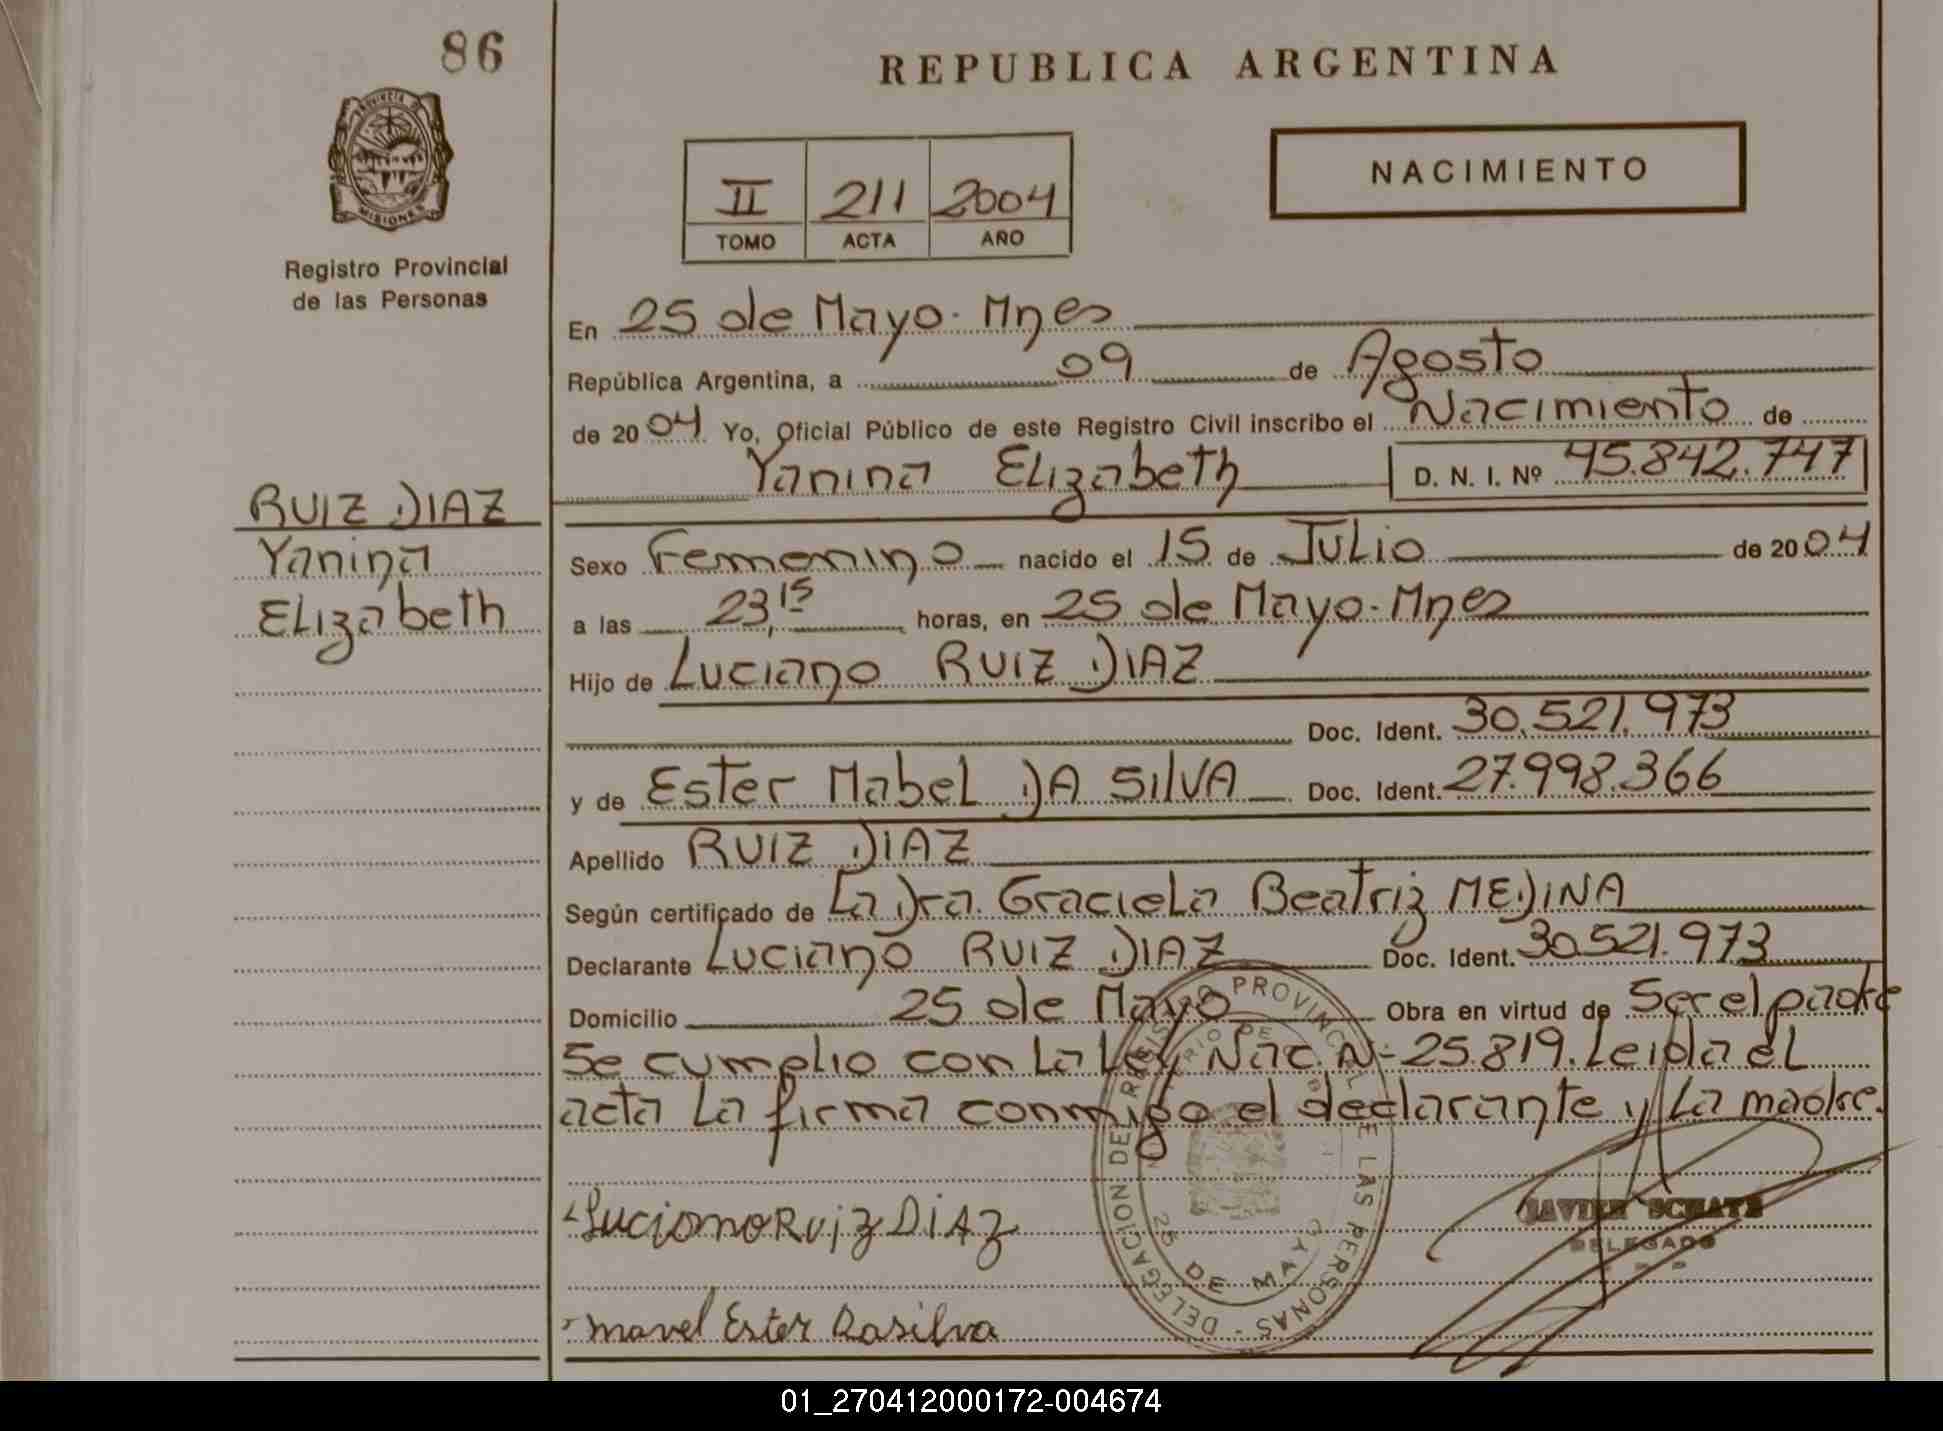 86
REPUBLICA ARGENTINA
PROVINCIA DE
MISIONES
Registro Provincial
de las Personas
II 211 2004
TOMO ACTA AÑO
NACIMIENTO
En 25 de Mayo. Mnes
República Argentina, a 09 de Agosto
de 2004 Yo, Oficial Público de este Registro Civil inscribo el Nacimiento de
Yanina Elizabeth D. N. I. Nº 45.842.747
RUIZ DIAZ
Yanina
Elizabeth
Sexo Femenino nacido el 15 de Julio de 2004
a las 23,15 horas, en 25 de Mayo. Mnes
Hijo de Luciano RUIZ DIAZ
Doc. Ident. 30.521.973
y de Ester Mabel DA SILVA Doc. Ident. 27.998.366
Apellido RUIZ DIAZ
Según certificado de La Dra. Graciela Beatriz MEDINA
Declarante Luciano RUIZ DIAZ Doc. Ident. 30.521.973
Domicilio 25 de Mayo Obra en virtud de Ser el padre
Se cumplio con La Ley Nac. N- 25.819. Leida el
acta La firma conmigo el declarante y La madre.
Luciano Ruiz DiAz
mavel Ester Dasilva
DELEGACION DEL REGISTRO PROVINCIAL DE LAS PERSONAS -
25 DE MAYO
JAVIER
DELEGADO
01_270412000172-004674